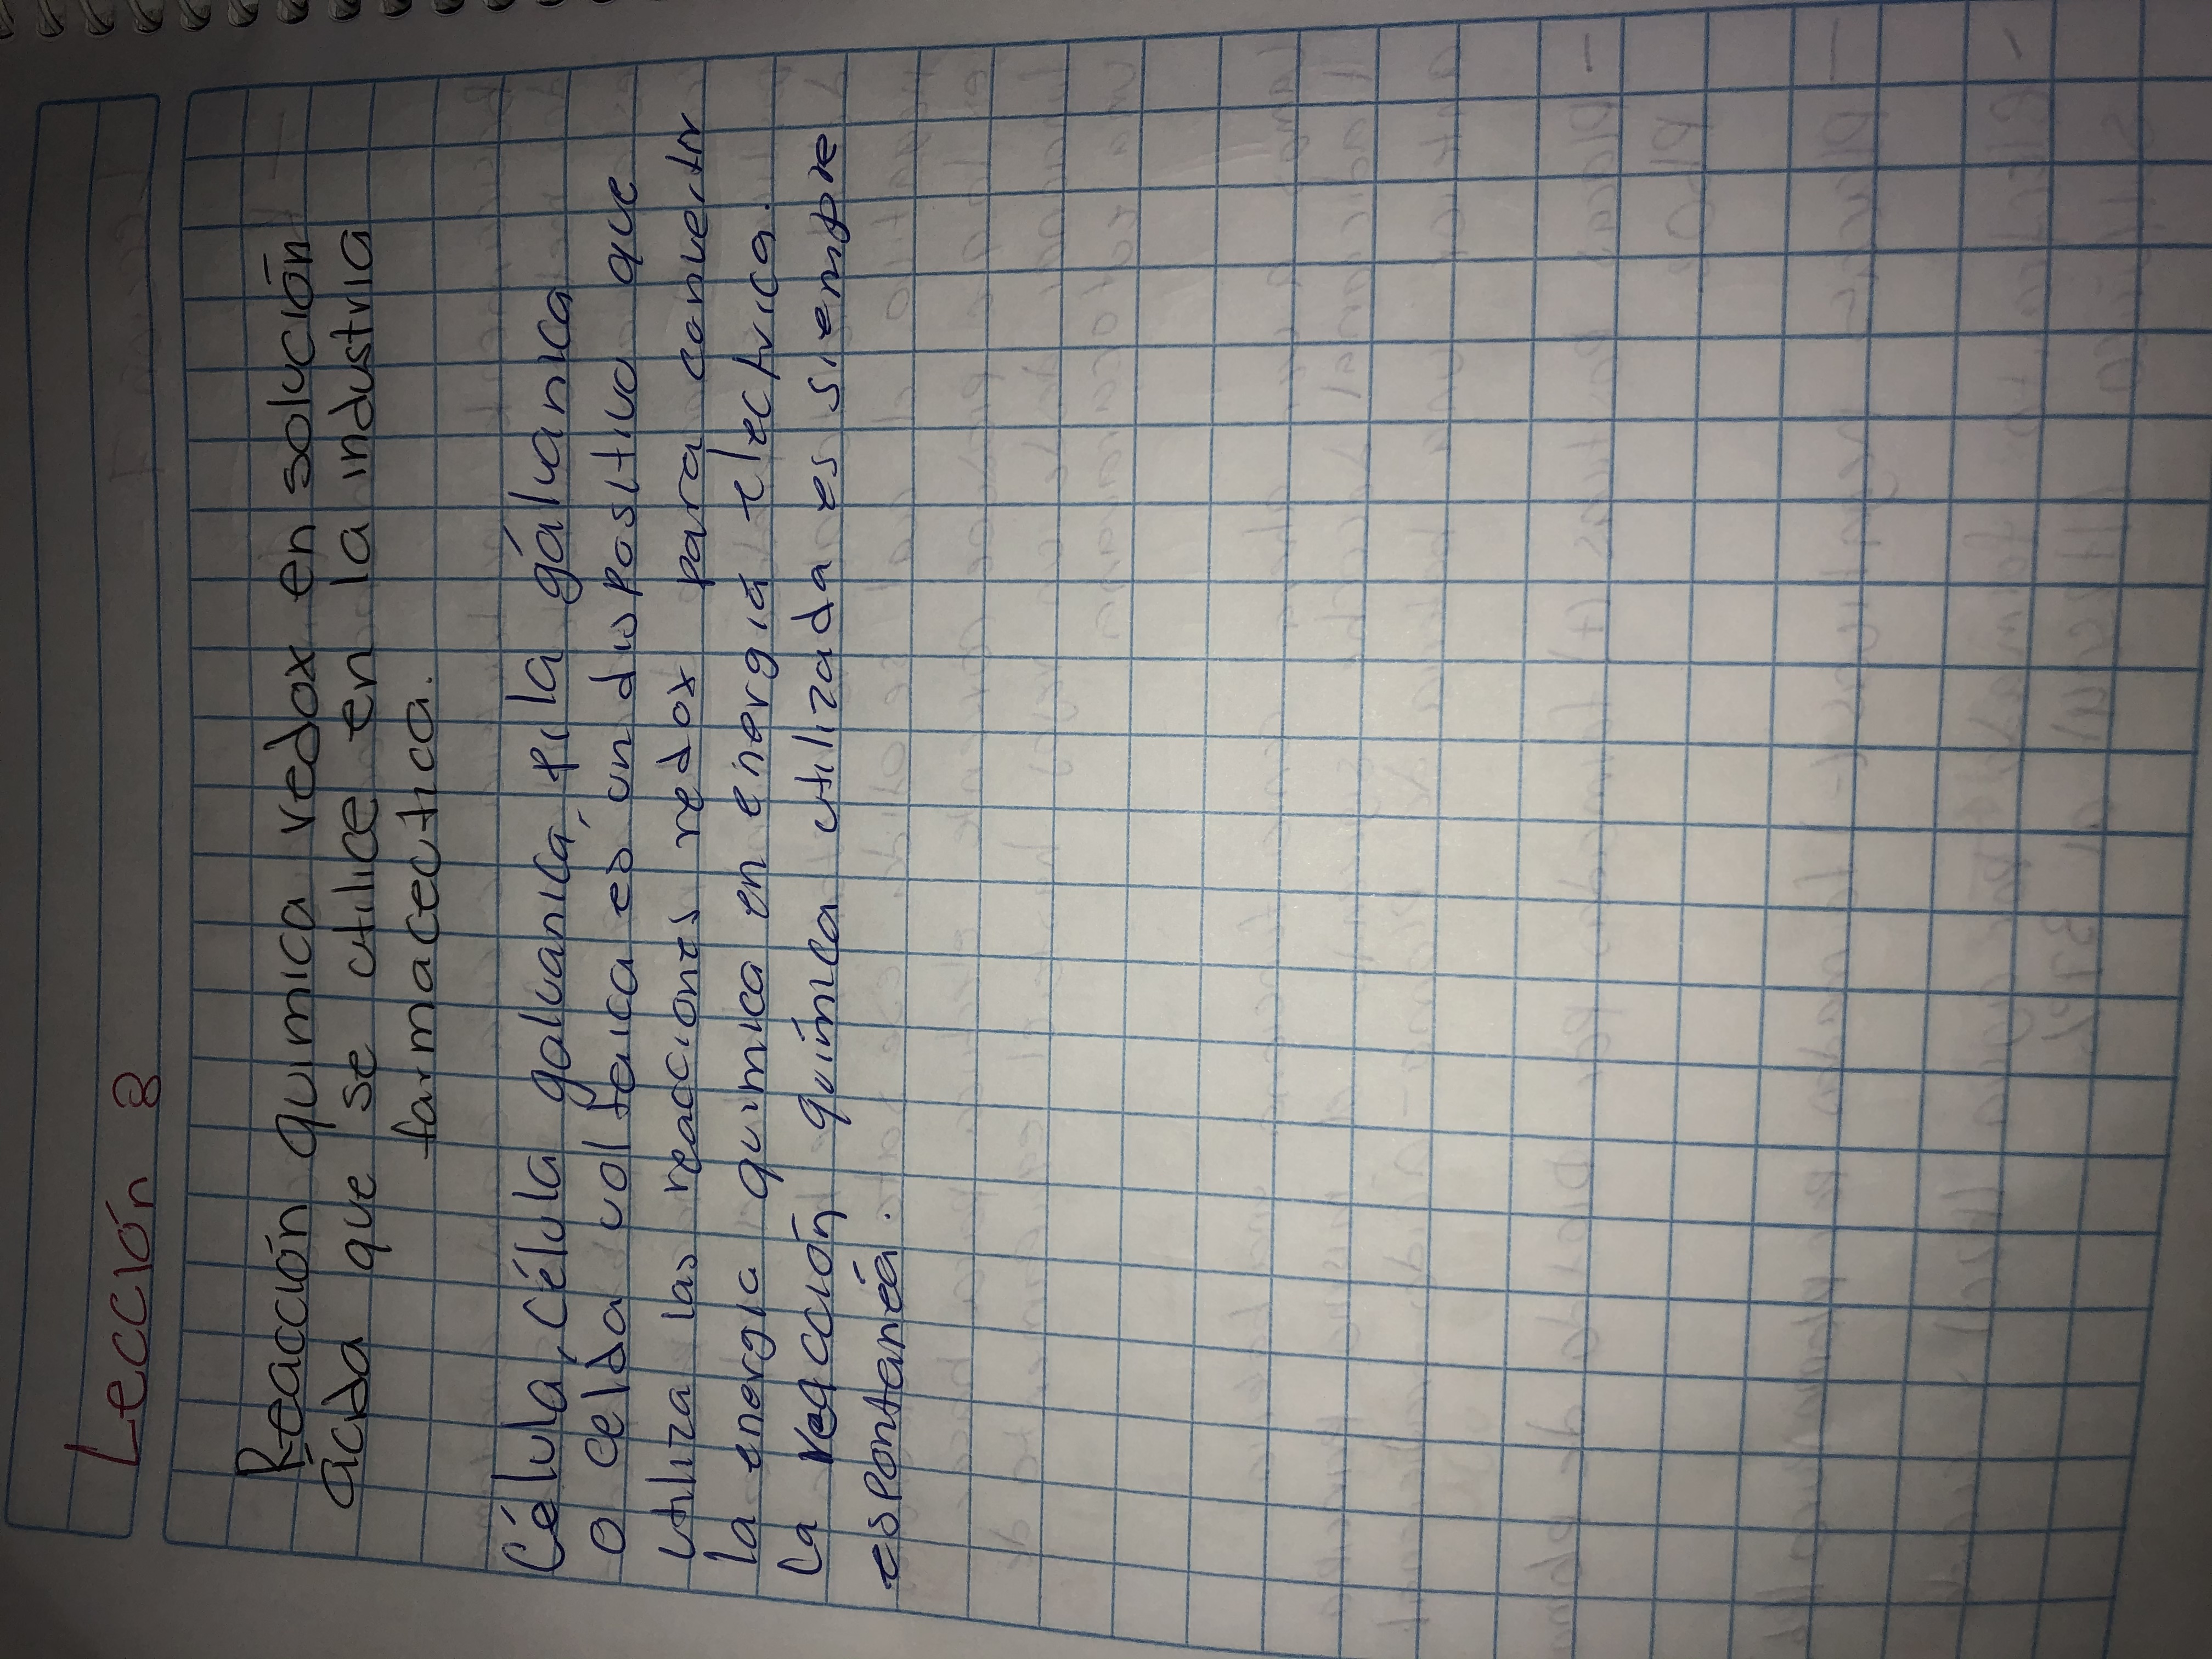 Lección 8
Reacción quimica redox en solución
ácida que se utilice en la industria
farmacectica.
Célula, Célula galvanica, pila gálvanica
o celda voltaica es un dispositivo que
utiliza las reacciones redox para convertir
la energia quimica en energia electrica.
La reacción química utilizada es siempre
espontanéa.